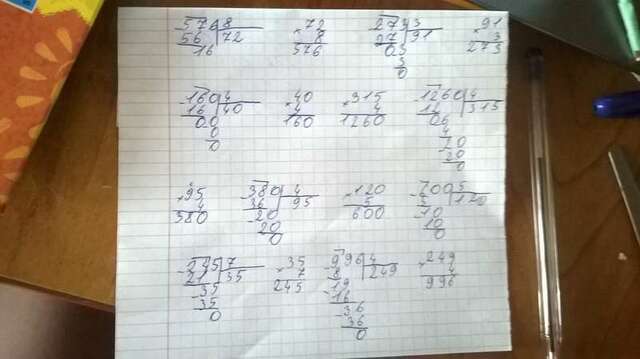 -576 8 ×72 -273 3 ×91
56 72 8 27 91 3
16 576 03 273
3
0
-160 4 ×40 ×315 -1260 4
16 40 4 4 12 315
00 160 1260 06
0 4
0 20
20
0
×95 -380 4 ×120 -600 5
4 36 95 5 5 120
380 -20 600 -10
20 10
0 0
-245 7 ×35 -996 4 ×249
21 35 7 8 249 4
-35 245 -19 996
35 16
0 -36
36
0